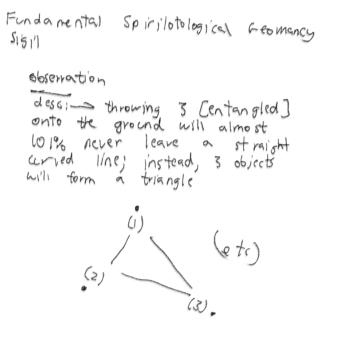 Fundamental Spirilotological Geomancy
Sigil
observation
desc:→ throwing 3 [entangled]
onto the ground will almost
101% never leave a straight
curved line; instead, 3 objects
will form a triangle
(1)
(etc)
(2)
(3).